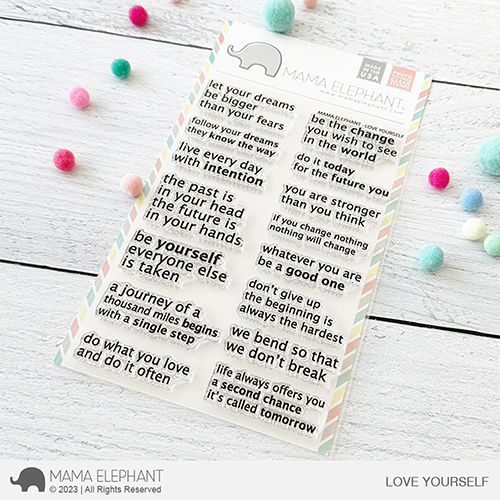 MAMA ELEPHANT
MADE
IN THE
USA
MAMA ELEPHANT - LOVE YOURSELF
let your dreams
be bigger
than your fears
follow your dreams
they know the way
live every day
with intention
the past is
in your head
the future is
in your hands
be yourself
everyone else
is taken
a journey of a
thousand miles begins
with a single step
do what you love
and do it often
be the change
you wish to see
in the world
do it today
for the future you
you are stronger
than you think
if you change nothing
nothing will change
whatever you are
be a good one
don't give up
the beginning is
always the hardest
we bend so that
we don't break
life always offers you
a second chance
it's called tomorrow
MAMA ELEPHANT
© 2023 | All Rights Reserved
LOVE YOURSELF